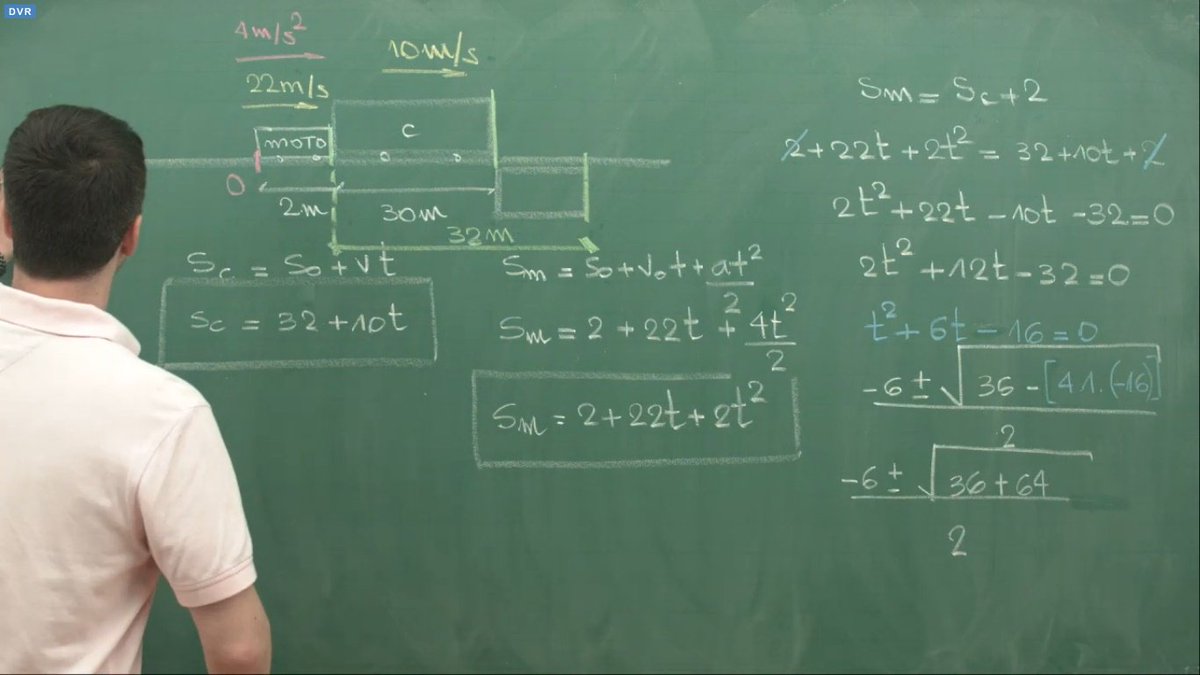 DVR
4m/s²
10m/s
22m/s
MOTO
C
0
2m
30m
32m
Sc = So + vt
Sc = 32 + 10t
Sm = So + Vo t + at²/2
Sm = 2 + 22t + 4t²/2
Sm = 2 + 22t + 2t²
Sm = Sc + 2
2 + 22t + 2t² = 32 + 10t + 2
2t² + 22t - 10t - 32 = 0
2t² + 12t - 32 = 0
t² + 6t - 16 = 0
-6 ± √36 - [4.1.(-16)]
2
-6 ± √36 + 64
2